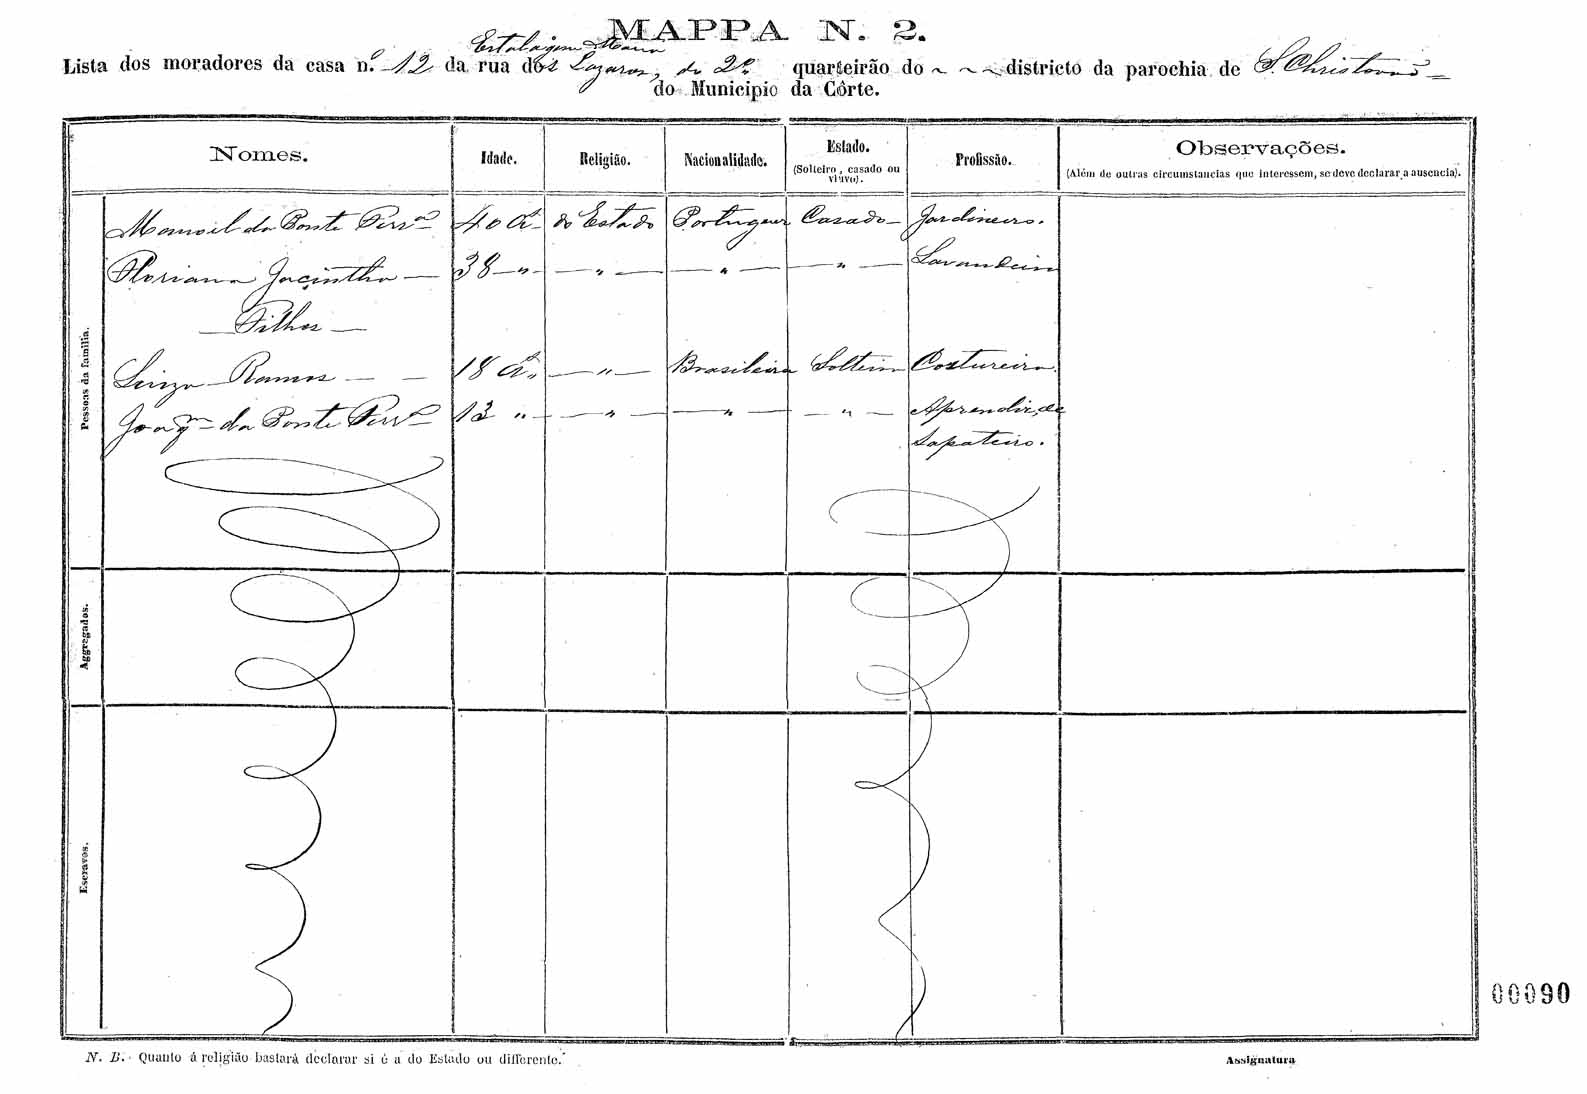 MAPPA N. 2.
Estalagem
Lista dos moradores da casa n.º 12 da rua dos Lazaros, do 2º quarteirão do ~ ~ ~ districto da parochia de S. Christovão —
do Municipio da Côrte.
Nomes. Idade. Religião. Nacionalidade. Estado. (Solteiro, casado ou viuvo). Profissão. Observações. (Além de outras circumstancias que interessem, se deve declarar a ausencia).
Pessoas da familia.
Manoel da Ponte Ferrª 40 Aˢ do Estado Portuguez Casado — Jardineiro.
Floriana Jacintha — 38 — " — — " — — " — — " — Lavandeira
— Filhos —
Ramos — — 18 Aˢ — " — Brasileira Solteira Costureira.
Joaqᵐ da Ponte Ferrª 13 " — — " — — " — — " — Aprendiz de
Sapateiro.
Aggregados.
Escravos.
00090
N. B. Quanto á religião bastará declarar si é a do Estado ou differente.
Assignatura